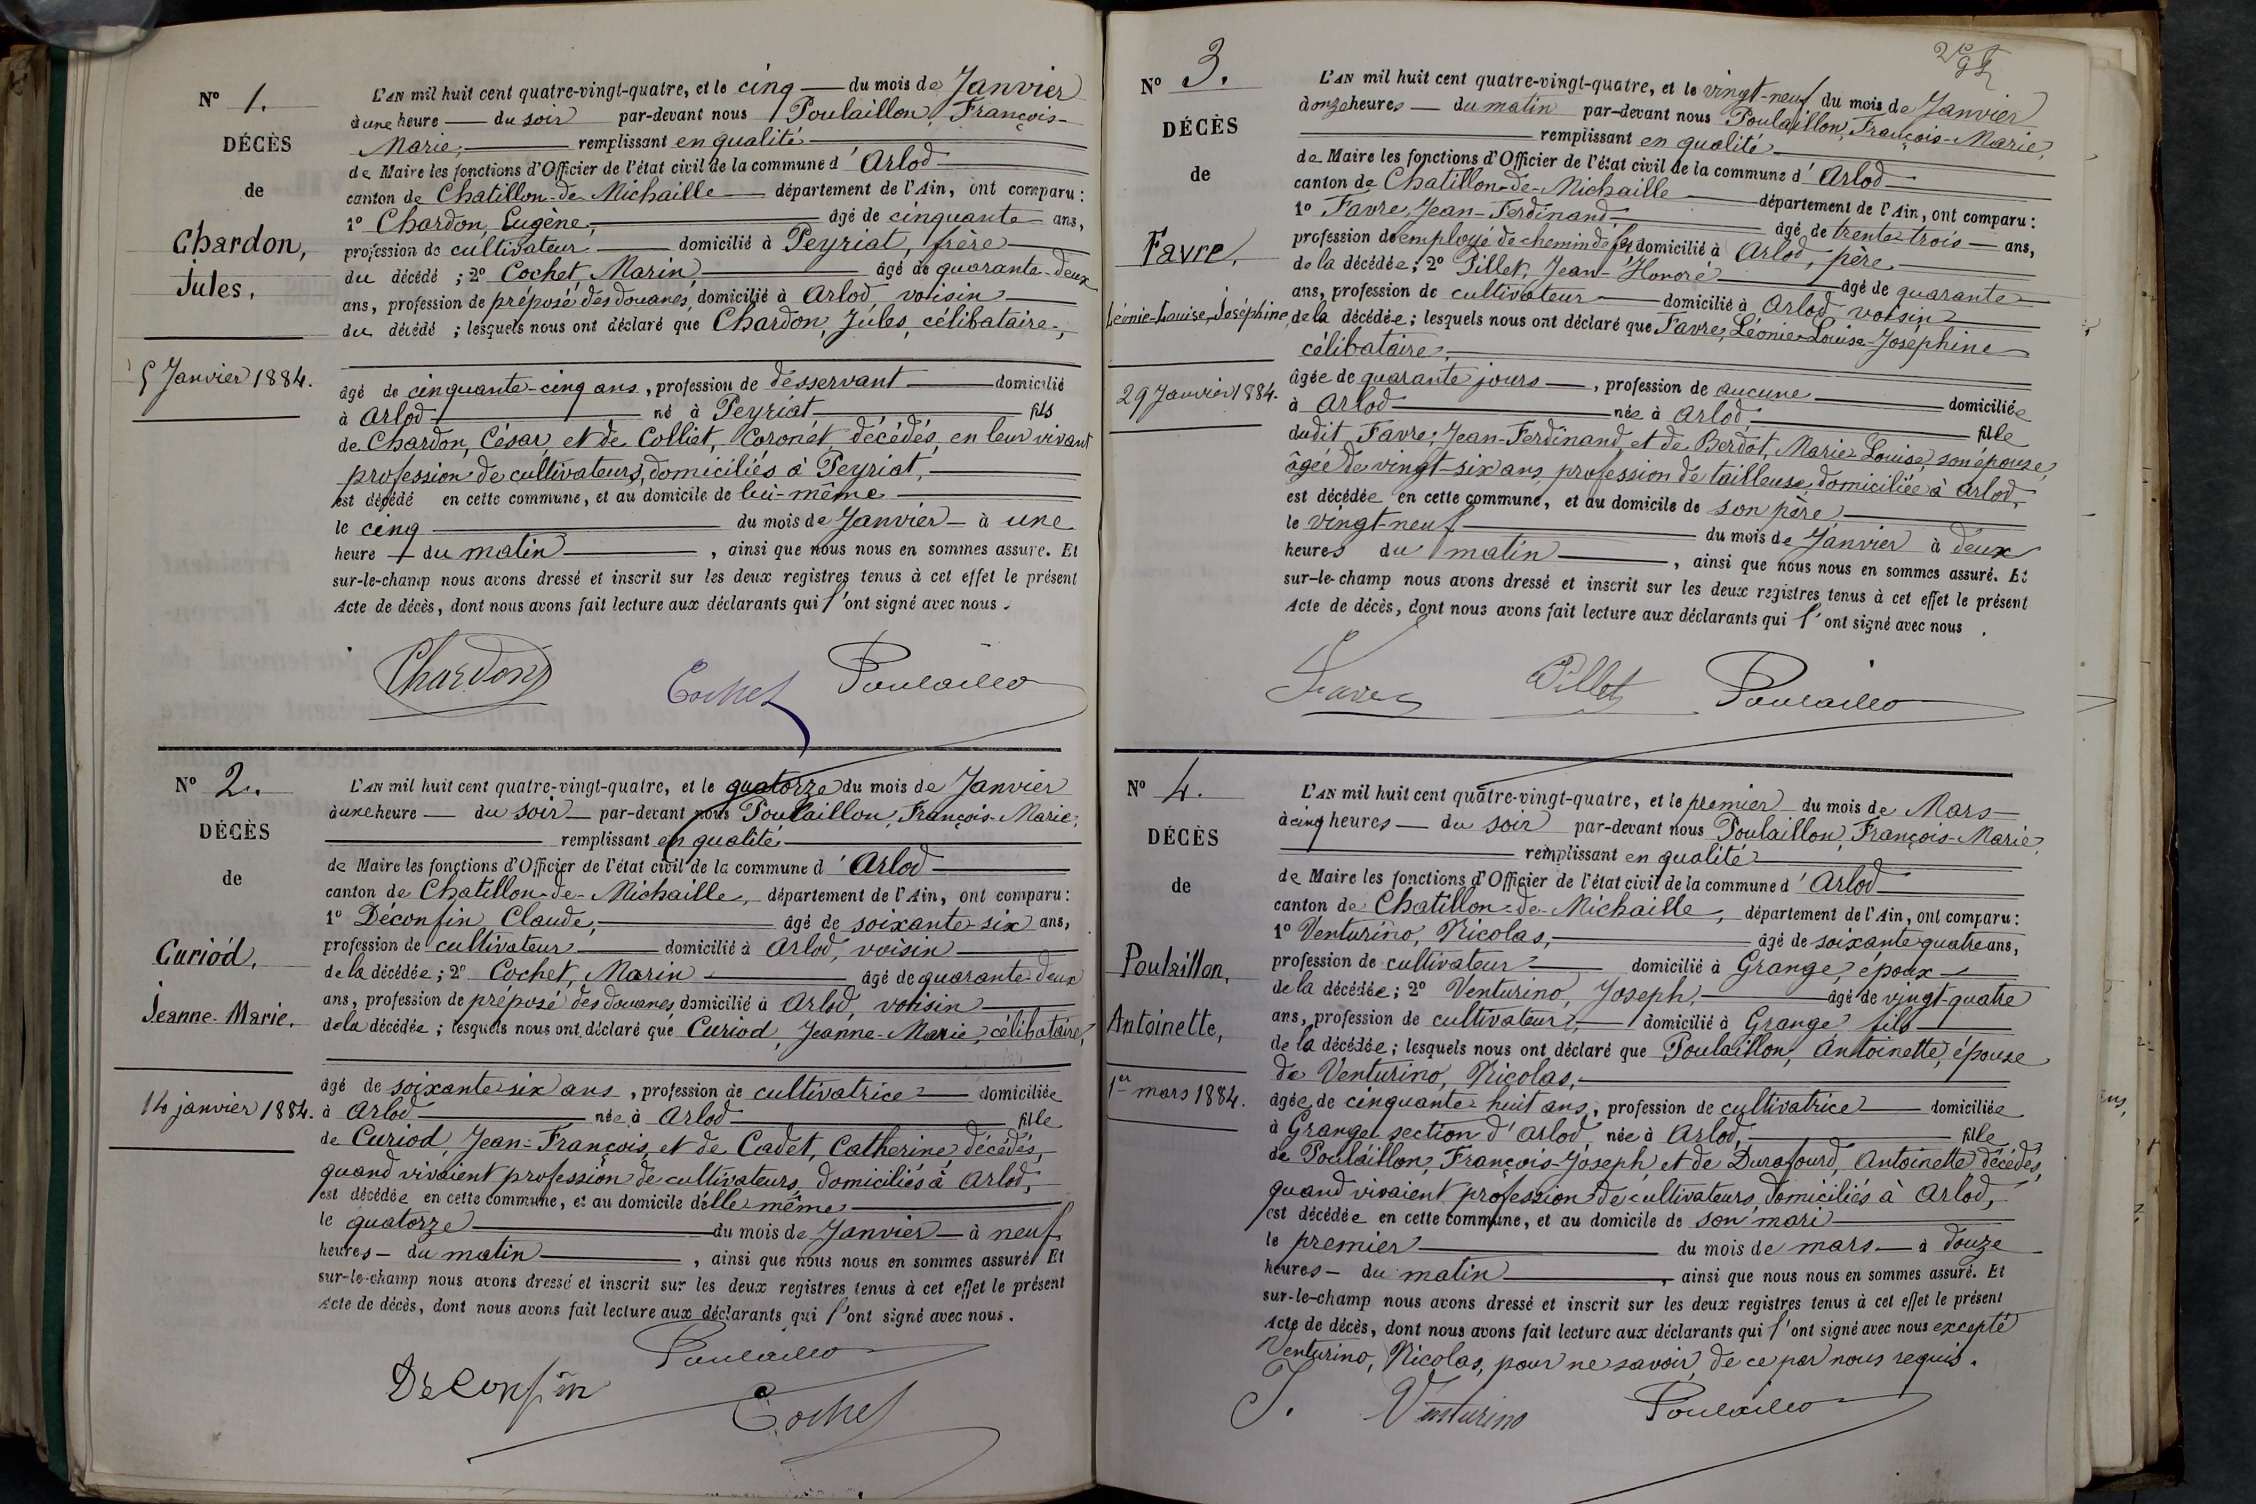 N° 1.
DÉCÈS
de
Chardon,
Jules,
5 Janvier 1884.
L'AN mil huit cent quatre-vingt-quatre, et le cinq du mois de Janvier
à une heure du soir par-devant nous Poulaillon, François-
Marie, remplissant en qualité
de Maire les fonctions d'Officier de l'état civil de la commune d'Arlod
canton de Chatillon-de-Michaille département de l'Ain, ont comparu:
1° Chardon, Eugène, âgé de cinquante ans,
profession de cultivateur domicilié à Peyriat, frère
du décédé ; 2° Cochet, Marin, âgé de quarante-deux
ans, profession de préposé des douanes, domicilié à Arlod, voisin
du décédé ; lesquels nous ont déclaré que Chardon, Jules, célibataire,
âgé de cinquante-cinq ans, profession de désservant domicilié
à Arlod né à Peyriat fils
de Chardon, César, et de Colliet, Coronét, décédés, en leur vivant
profession de cultivateurs, domiciliés à Peyriat,
est décédé en cette commune, et au domicile de lui-même
le cinq du mois de Janvier à une
heure du matin , ainsi que nous nous en sommes assuré. Et
sur-le-champ nous avons dressé et inscrit sur les deux registres tenus à cet effet le présent
Acte de décès, dont nous avons fait lecture aux déclarants qui l'ont signé avec nous.
Chardon Cochet Poulaillo
N° 2.
DÉCÈS
de
Curiód,
Jeanne-Marie.
14 janvier 1884.
L'AN mil huit cent quatre-vingt-quatre, et le quatorze du mois de Janvier
à une heure du soir par-devant nous Poulaillon, François-Marie,
remplissant en qualité
de Maire les fonctions d'Officier de l'état civil de la commune d'Arlod
canton de Chatillon-de-Michaille, département de l'Ain, ont comparu:
1° Déconfin Claude, âgé de soixante-six ans,
profession de cultivateur domicilié à Arlod, voisin
de la décédée ; 2° Cochet, Marin âgé de quarante-deux
ans, profession de préposé des douanes, domicilié à Arlod, voisin
de la décédée ; lesquels nous ont déclaré que Curiod, Jeanne-Marie, célibataire,
âgé de soixante six ans, profession de cultivatrice domiciliée
à Arlod née à Arlod fille
de Curiod, Jean-François, et de Cadet, Catherine, décédés,
quand vivaient profession de cultivateurs, domiciliés à Arlod,
est décédée en cette commune, et au domicile d'elle même
le quatorze du mois de Janvier à neuf
heures du matin , ainsi que nous nous en sommes assuré Et
sur-le-champ nous avons dressé et inscrit sur les deux registres tenus à cet effet le présent
Acte de décès, dont nous avons fait lecture aux déclarants qui l'ont signé avec nous.
Poulaillo
Deconfin Cochet
N° 3.
DÉCÈS
de
Favre,
Léonie-Louise-Joséphine,
29 Janvier 1884.
L'AN mil huit cent quatre-vingt-quatre, et le vingt-neuf du mois de Janvier
à onze heures du matin par-devant nous Poulaillon, François-Marie,
remplissant en qualité
de Maire les fonctions d'Officier de l'état civil de la commune d'Arlod
canton de Chatillon-de-Michaille département de l'Ain, ont comparu:
1° Favre, Jean-Ferdinand âgé de trente-trois ans,
profession de employé de chemin de fer domicilié à Arlod, père
de la décédée ; 2° Pillet, Jean-Honoré âgé de quarante
ans, profession de cultivateur domicilié à Arlod voisin
de la décédée ; lesquels nous ont déclaré que Favre, Léonie-Louise-Joséphine
célibataire,
âgée de quarante jours , profession de aucune domiciliée
à Arlod née à Arlod, fille
dudit Favre, Jean-Ferdinand, et de Berdot, Marie-Louise, son épouse,
âgée de vingt-six ans, profession de tailleuse, domiciliée à Arlod,
est décédée en cette commune, et au domicile de son père,
le vingt-neuf du mois de Janvier à deux
heures du matin , ainsi que nous nous en sommes assuré. Et
sur-le-champ nous avons dressé et inscrit sur les deux registres tenus à cet effet le présent
Acte de décès, dont nous avons fait lecture aux déclarants qui l'ont signé avec nous.
Favre Pillet Poulaillo
N° 4.
DÉCÈS
de
Poulaillon,
Antoinette,
1er mars 1884.
L'AN mil huit cent quatre-vingt-quatre, et le premier du mois de Mars
à cinq heures du soir par-devant nous Poulaillon, François-Marie,
remplissant en qualité
de Maire les fonctions d'Officier de l'état civil de la commune d'Arlod
canton de Chatillon-de-Michaille, département de l'Ain, ont comparu:
1° Venturino, Nicolas, âgé de soixante quatre ans,
profession de cultivateur domicilié à Grange, époux
de la décédée ; 2° Venturino, Joseph, âgé de vingt-quatre
ans, profession de cultivateur, domicilié à Grange fils
de la décédée ; lesquels nous ont déclaré que Poulaillon, Antoinette, épouse
de Venturino, Nicolas,
âgée de cinquante huit ans, profession de cultivatrice domiciliée
à Grange section d'Arlod, née à Arlod, fille
de Poulaillon, François-Joseph et de Durafourd, Antoinette décédés,
quand vivaient profession de cultivateurs, domiciliés à Arlod,
est décédée en cette commune, et au domicile de son mari
le premier du mois de mars à douze
heures du matin , ainsi que nous nous en sommes assuré. Et
sur-le-champ nous avons dressé et inscrit sur les deux registres tenus à cet effet le présent
Acte de décès, dont nous avons fait lecture aux déclarants qui l'ont signé avec nous excepté
Venturino, Nicolas, pour ne savoir, de ce par nous requis.
J. Venturino Poulaillo